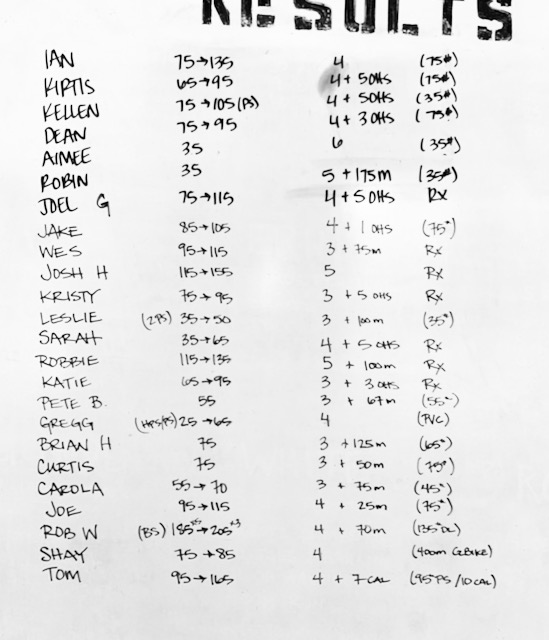 RESULTS
IAN 75→135 4 (75#)
KIRTIS 65→95 4 + 5 OHS (75#)
KELLEN 75→105 (PS) 4 + 5OHS (35#)
DEAN 75→95 4 + 3 OHS (75#)
AIMEE 35 6 (35#)
ROBIN 35 5 + 175m (35#)
JOEL G 75→115 4 + 5 OHS RX
JAKE 85→105 4 + 1 OHS (75#)
WES 95→115 3 + 75m RX
JOSH H 115→155 5 RX
KRISTY 75→95 3 + 5 OHS RX
LESLIE (2PS) 35→50 3 + 100m (35#)
SARAH 35→65 4 + 5 OHS RX
ROBBIE 115→135 5 + 100m RX
KATIE 65→95 3 + 3 OHS RX
PETE B. 55 3 + 67m (55#)
GREGG (HPS/PS) 25→65 4 (PVC)
BRIAN H 75 3 + 125m (65#)
CURTIS 75 3 + 50m (75#)
CAROLA 55→70 3 + 75m (45#)
JOE 95→115 4 + 25m (75#)
ROB W (BS) 185→205 x3 4 + 70m (135# DL)
SHAY 75→85 4 (400m
TOM 95→165 4 + 7 CAL (95#PS/10CAL)